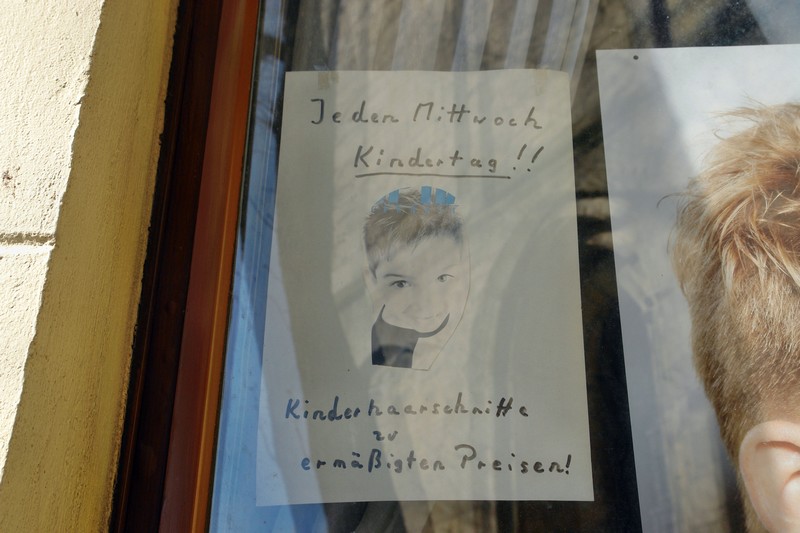 Jeden Mittwoch
Kindertag!!
Kinderhaarschnitte
zu
ermäßigten Preisen!